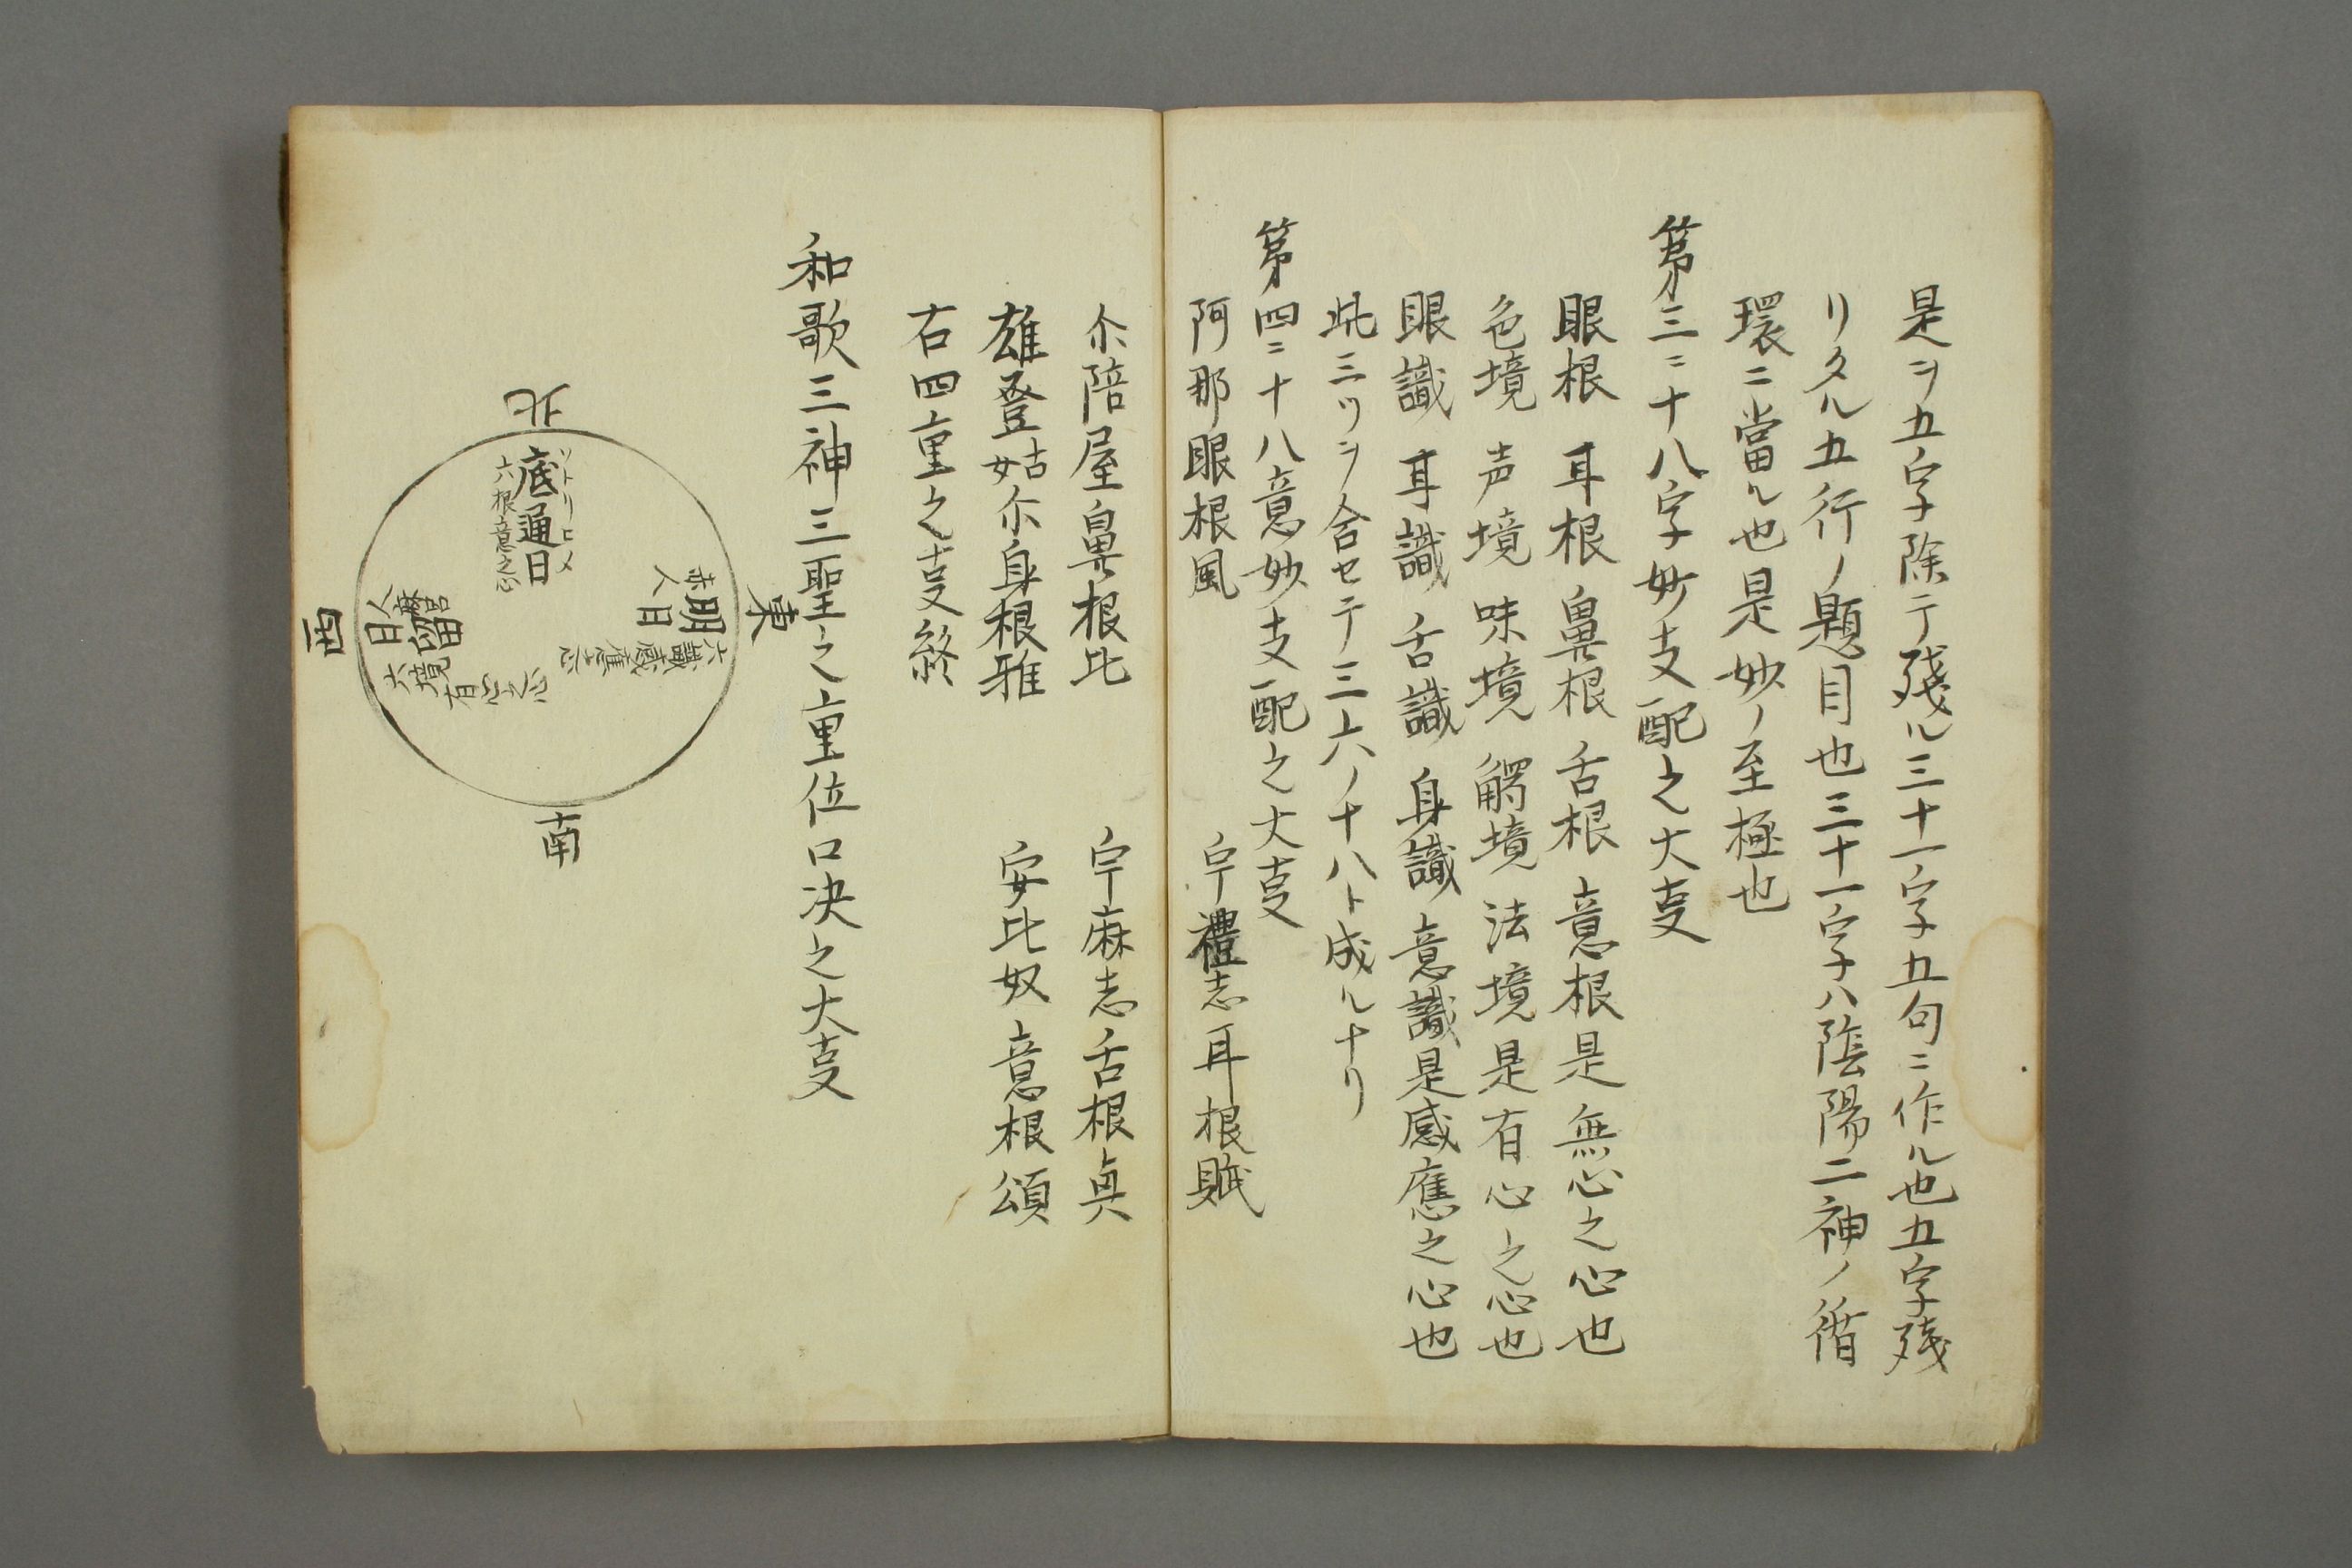 是ヲ五字除テ殘ル三十一字五句ニ作ル也五字残
リタル五行ノ題目也三十一字ハ陰陽二神ノ循
環ニ當ル也是妙ノ至極也
第三ニ十八字妙支配之大事
眼根 耳根 鼻根 舌根 意根是無心之心也
色境 声境 味境 觸境 法境是有心之心也
眼識 耳識 舌識 身識 意識是感應之心也
此三ツヲ合セテ三六ノ十八ト成ルナリ
第四ニ十八意妙支配之大事
阿那眼根風 宇禮志耳根賦
尓陪屋鼻根比 宇麻志舌根奥
雄登姑尓身根雅 安比奴意根頌
右四重之事終
和歌三神三聖之重位口决之大事
東
赤人
明日
六識感應心
北
ソトリヒメ
底通日
六根意之心
南
西
人麿
留日
六境有